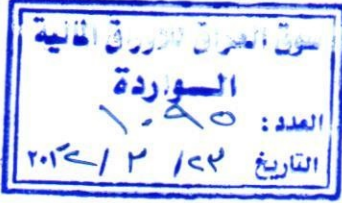 سوق العراق للاوراق المالية
الـــواردة
العدد : ١٠٩٥
التاريخ ٢٣/ ٣ /٢٠١٢